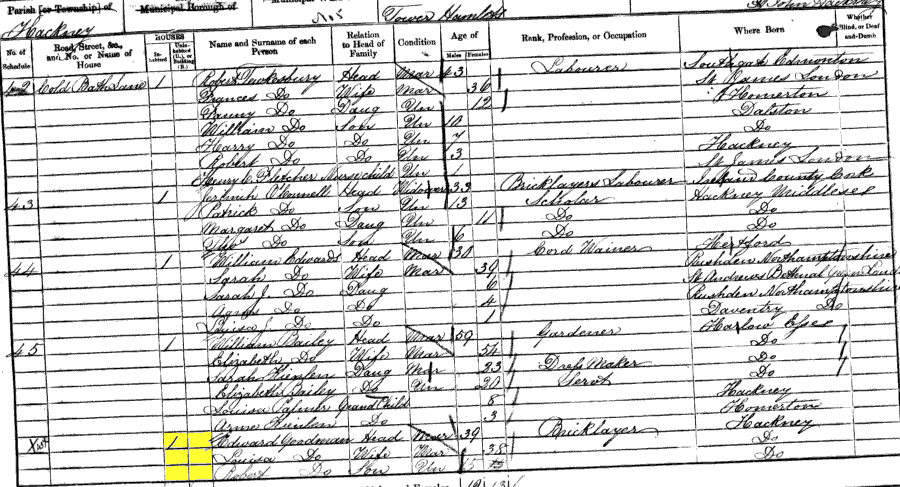 Parish [or Township] of
Hackney
Municipal Borough of
Tower Hamlets
No. of Schedule
Road, Street, &c., and No. or Name of House
HOUSES
Inhabited
Uninhabited (U.), or Building (B.)
Name and Surname of each Person
Relation to Head of Family
Condition
Age of
Males
Females
Rank, Profession, or Occupation
Where Born
Whether Blind, or Deaf-and-Dumb
42 Cold Bath Lane 1 Robert Tewkesbury Head Mar 43 Labourer Southgate Edmonton
Frances Do Wife Mar 36 St James London
Fanny Do Daug Un 12 Homerton
William Do Son Un 10 Dalston
Harry Do Do Un 7 Do
Robert Do Do Un 3 Hackney
Henry C. Fletcher Nurse child Un 1 St James London
43 1 Jeremiah O'Connell Head Widower 33 Bricklayers Labourer Ireland County Cork
Patrick Do Son Un 13 Scholar Hackney Middlesex
Margaret Do Daug Un 11 Do Do
Do Son Un 6 Do Do
44 1 William Edwards Head Mar 30 Cord Wainer Hertford
Sarah Do Wife Mar 39 Rushden Northamptonshire
Sarah J. Do Daug 6 St Andrews Bethnal Green
Agnes Do Do 4 Rushden Northamptonshire
Louisa J. Do Do 1 Daventry Do
45 1 William Bailey Head Mar 59 Gardener Harlow Essex
Elizabeth Do Wife Mar 54 Do
Sarah Daug Mar 23 Dress Maker Do
Elizabeth Bailey Do Un 20 Servt Do
Louisa Palmer Grand Child 8 Hackney
Do 3 Homerton
1 Edward Goodman Head Mar 39 Bricklayer Hackney
Louisa Do Wife Mar 38 Do
Robert Do Son Un 15 Do